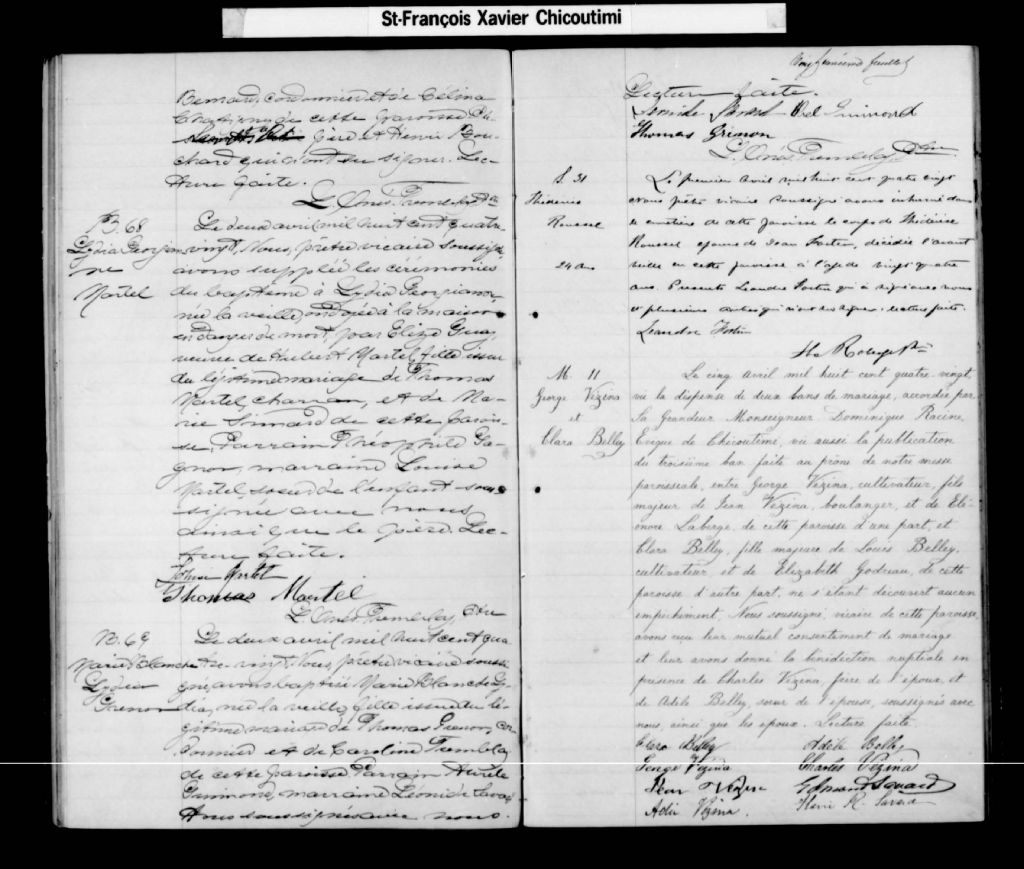 St-François Xavier Chicoutimi
Bernard, cordonnier et de Célina
de cette paroisse
père et Henri Bou-
chard qui n'ont su signer. Lec-
ture faite.
B. 68
Lydia Georgian-
ne
Martel
Le deux avril mil huit cent quatre-
vingt, Nous, prêtre vicaire soussigné
avons suppléé les cérémonies
du baptême à Lydia Georgianne,
née la veille, ondoyée à la maison
en danger de mort, par Elize Guay,
épouse de Hubert Martel, fille issue
du légitime mariage de Thomas
Martel, charron, et de Ma-
rie Simard de cette parois-
se. Parrain Théophile Ga-
gnon, marraine Louise
Martel, soeur de l'enfant sous-
signée avec nous
ainsi que le père. Lec-
ture faite.
Thomas Martel
L. Onés. Tremblay, Ptre
B. 69
Marie Blanche
Lydia
Grenon
Le deux avril mil huit cent qua
tre-vingt, Nous, prêtre vicaire soussi
gné, avons baptisé Marie Blanche Ly-
dia, née la veille, fille issue du lé-
gitime mariage de Thomas Grenon, cor
donnier et de Caroline Tremblay
de cette paroisse. Parrain Aurèle
Guimond, marraine Léonide Savard
tous soussignés avec nous.
feuillet
Lecture faite.
Guimond
Thomas Grenon
L. Onés. Tremblay, Ptre
S. 31
Roussel
24 ans
Le premier Avril mil huit cent quatre vingt
Nous prêtre vicaire soussigné avons inhumé dans
le cimetière de cette paroisse le corps de
Roussel épouse de Jean Fortin, décédée l'avant
veille en cette paroisse à l'âge de vingt quatre
ans. Présents Léandre Fortin qui a signé avec nous
et plusieurs autres qui n'ont su signer. Lecture faite.
Léandre Fortin
M. 11
George Vézina
et
Clara Belley
Le cinq Avril mil huit cent quatre-vingt,
vu la dispense de deux bans de mariage, accordée par
Sa Grandeur Monseigneur Dominique Racine,
Evêque de Chicoutimi, vu aussi la publication
du troisième ban faite au prône de notre messe
paroissiale, entre George Vézina, cultivateur, fils
majeur de Jean Vézina, boulanger, et de Elé-
onore Laberge, de cette paroisse d'une part, et
Clara Belley, fille majeure de Louis Belley,
cultivateur, et de Elizabeth Godreau, de cette
paroisse d'autre part, ne s'étant découvert aucun
empêchement, Nous soussigné, vicaire de cette paroisse,
avons reçu leur mutuel consentement de mariage
et leur avons donné la bénédiction nuptiale en
présence de Charles Vézina, frère de l'époux, et
de Adèle Belley, soeur de l'épouse, soussignés avec
nous, ainsi que les époux. Lecture faite.
Clara Belley
Adèle Belley
George Vézina
Charles Vézina
Jean Vézina
Adèle Vézina